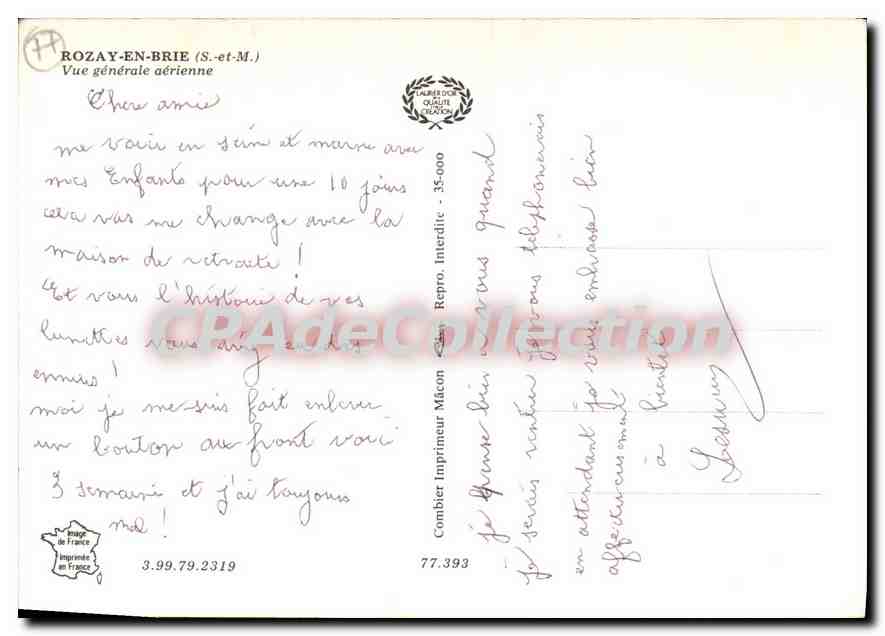 77
ROZAY-EN-BRIE (S.-et-M.)
Vue générale aérienne
Chere amie
me voici en seine et marne avec
mes Enfants pour une 10 jours
cela vas me change avec la
maison de retraite !
Et vous l'histoire de vos
lunettes vous avez eu des
ennuis !
moi je me suis fait enlever
un bouton au front voici
3 semaine et j'ai toujours
mal !
Image
de France
Imprimée
en France
3.99.79.2319
LAURIER D'OR
DE LA
QUALITÉ
CRÉATION
Combier Imprimeur Mâcon Repro. Interdite - 35-000
77.393
je pense bien a vous quand
je serais rentrer je vous téléphonerais
en attendant je vous embrasse bien
affectueusement
à bientôt
CPAdeCollection.com